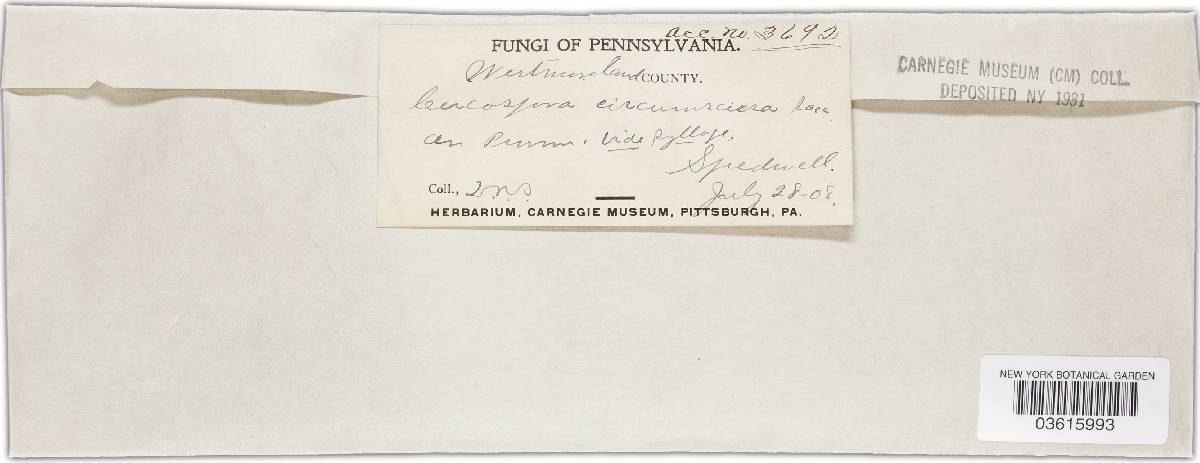 Acc. no. 3692
FUNGI OF PENNSYLVANIA.
Westmoreland COUNTY.
circumscissa Sacc.
on Prunus. Vide Sylloge.
Speedwell.
Coll., July 28-08.
HERBARIUM, CARNEGIE MUSEUM, PITTSBURGH, PA.
CARNEGIE MUSEUM (CM) COLL.
DEPOSITED NY 1981
NEW YORK BOTANICAL GARDEN
03615993